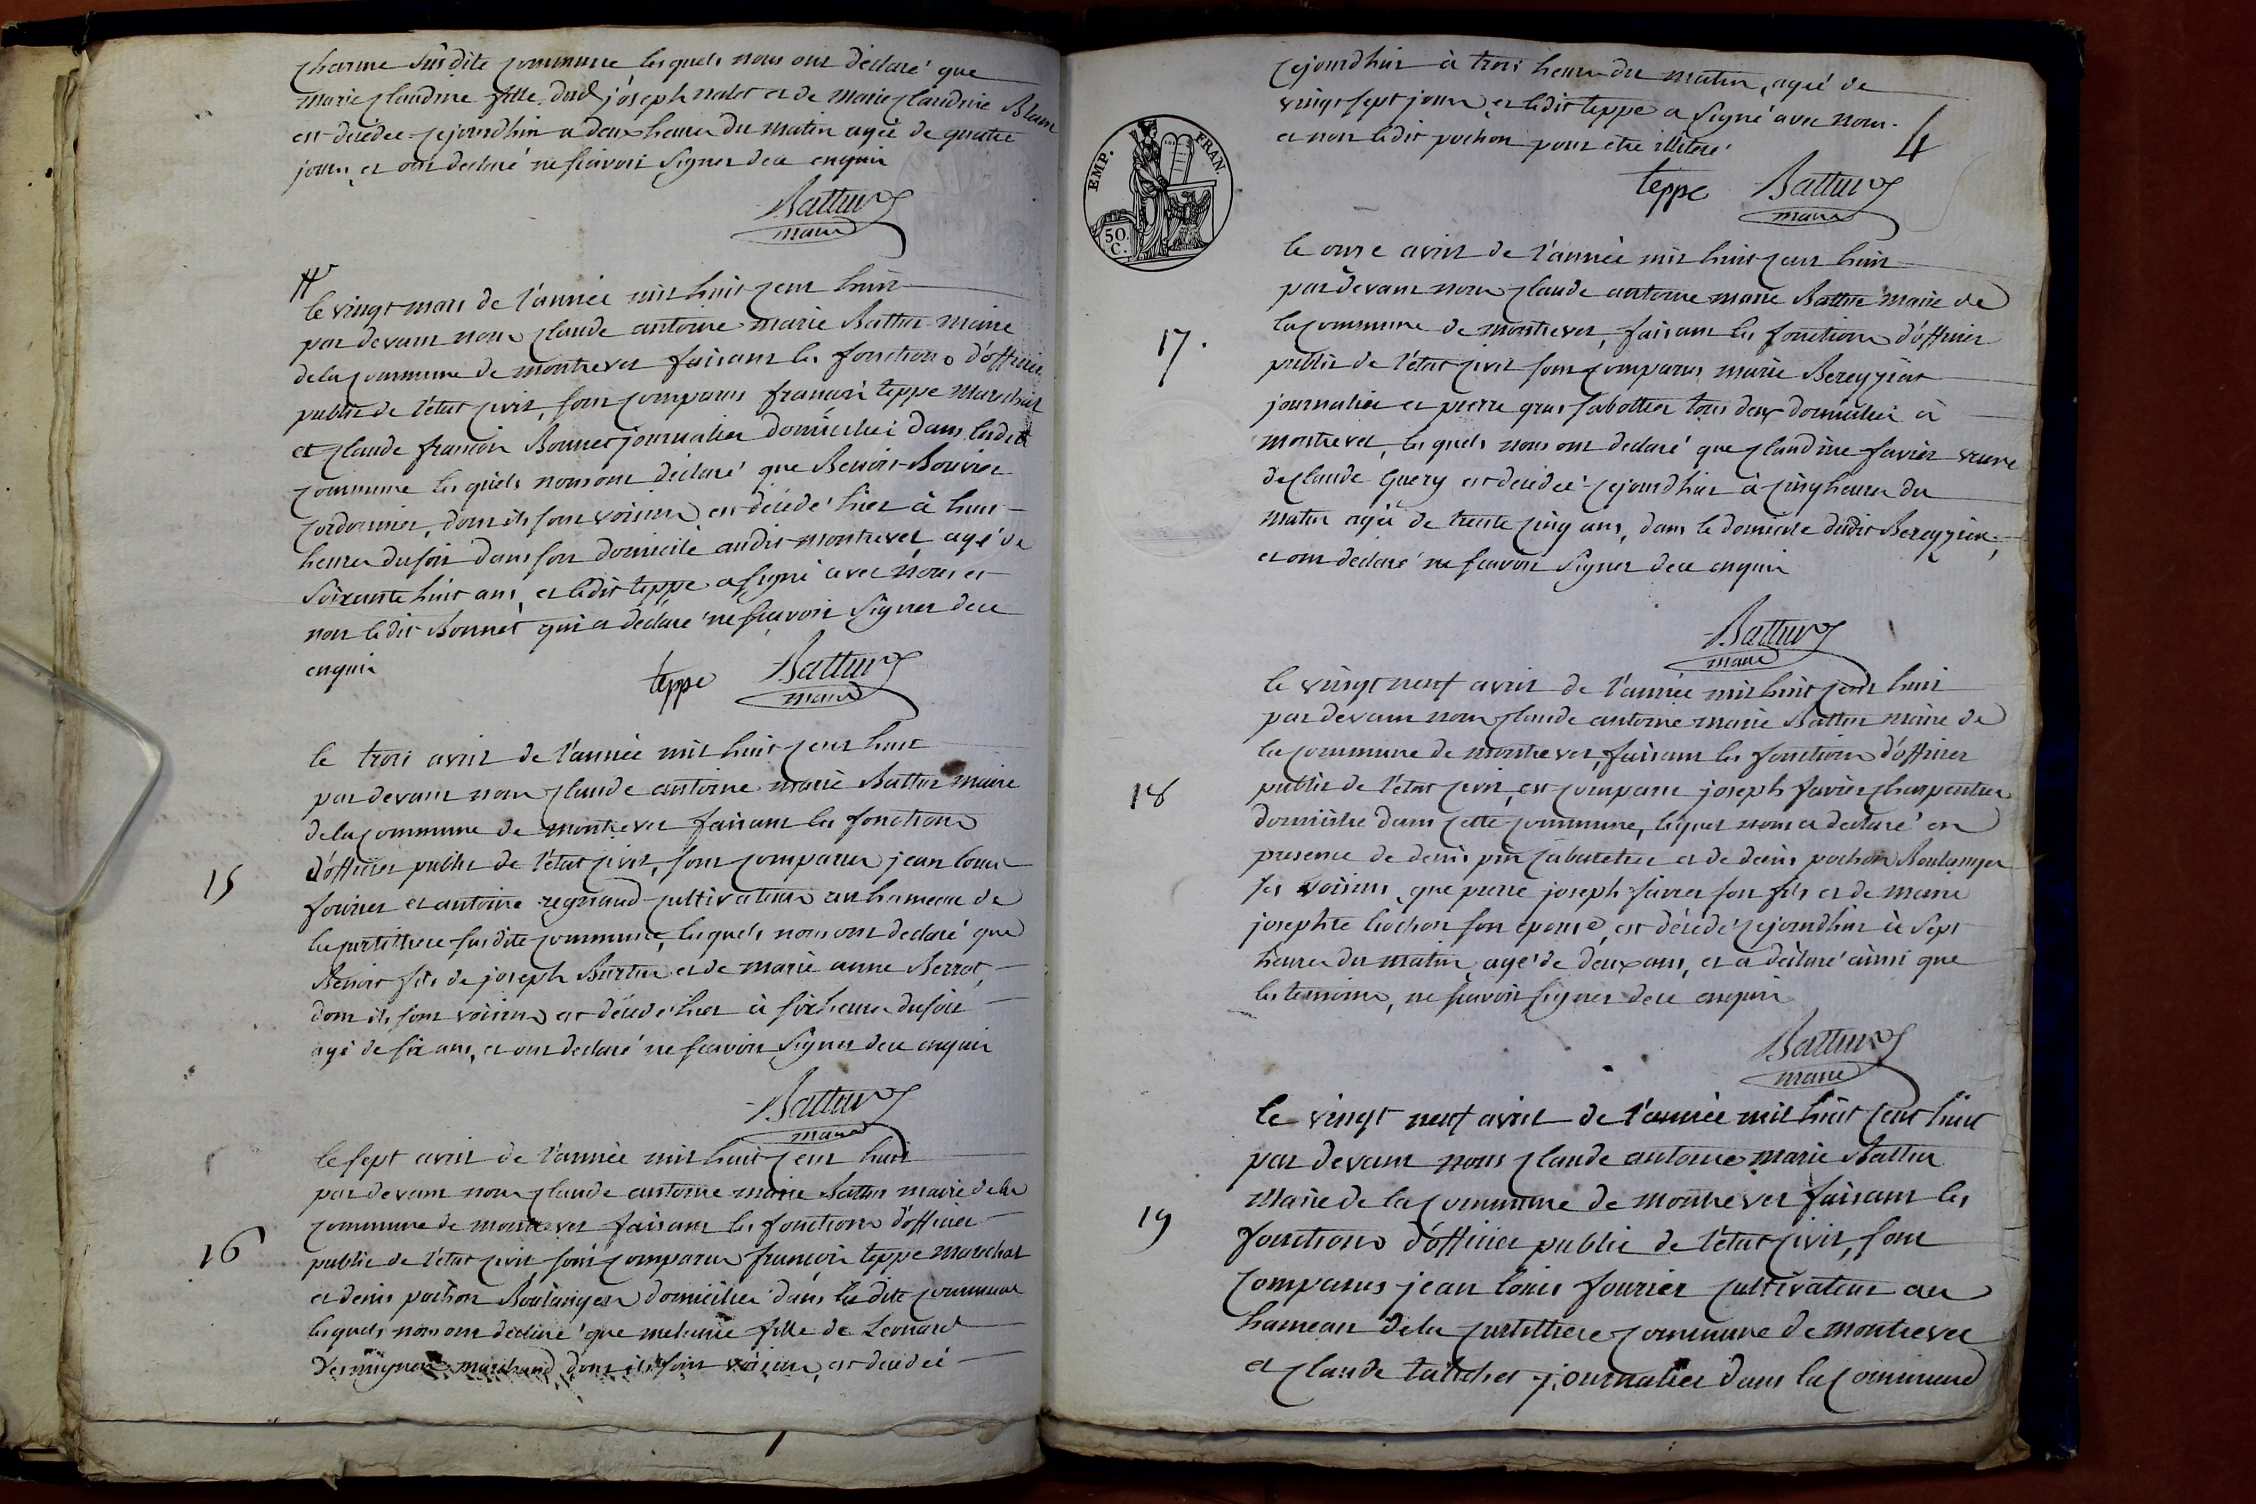 charme susdite commune lesquels nous ont déclaré que
marie claudine fille dud joseph nalet et de marie claudine Blanc
est décédée cejourdhui a deux heures du matin agée de quatre
jours, et ont declaré ne scavoir signer de ce enquis
Battur
maire
le vingt mars de l'année mil huit cent huit
par devant nous claude antoine marie Battur maire
de la commune de montrevel faisant les fonctions d'officier
public de l'état civil, sont comparus françois teppe marechal
et claude françois Bonnet journalier domiciliés dans ladite
commune lesquels nous ont déclaré que Benoit Bouvier
cordonnier, dont ils sont voisins est décédé hier à huit
heures du soir dans son domicile audit montrevel agé de
soixante huit ans, et ledit teppe a signé avec nous et
non ledit Bonnet qui a déclaré ne scavoir signer de ce
enquis
teppe Battur
maire
le trois avril de l'année mil huit cent huit
par devant nous claude antoine marie Battur maire
de la commune de montrevel faisant les fonctions
15
d'officier public de l'état civil, sont comparus jean louis
fourier et antoine regnaud cultivateurs au hameau de
la curtillere susdite commune, lesquels nous ont declaré que
Benoit fils de joseph Burtin et de marie anne Berrot,
dont ils sont voisins est décédé hier à six heures du soir
agé de six ans, et ont declaré ne scavoir signer de ce enquis
Battur
maire
le sept avril de l'année mil huit cent huit
par devant nous claude antoine marie Battur maire de la
commune de montrevel faisant les fonctions d'officier
16
public de l'état civil, sont comparus françois teppe marechal
et denis pochon Boulangers domiciliés dans la dite commune
lesquels nous ont déclaré que melanie fille de Leonard
marchand, dont ils sont voisins, est décédée
cejourdhui à trois heures du matin, agé de
vingt sept jours, et ledit teppe a signé avec nous
et non ledit pochon pour etre illiteré
4
EMP. FRAN.
50. C.
teppe Battur
maire
le onze avril de l'année mil huit cent huit
par devant nous claude antoine marie Battur maire de
la commune de montrevel, faisant les fonctions d'officier
17.
public de l'état civil sont comparus marie Bereyziat
journalier et pierre gras sabottier tous deux domiciliés à
montrevel, lesquels nous ont declaré que claudine favier veuve
de claude Guery est décédée cejourdhui à cinq heures du
matin agée de trente cinq ans, dans le domicile dudit Bereyziat,
et ont déclaré ne scavoir signer de ce enquis
Battur
maire
le vingt neuf avril de l'année mil huit cent huit
par devant nous claude antoine marie Battur maire de
la commune de montrevel, faisant les fonctions d'officier
18
public de l'état civil, est comparu joseph favier charpentier
domicilié dans cette commune, lequel nous a declaré en
presence de denis pin cabaretier et de denis pochon Boulanger
ses voisins, que pierre joseph favier son fils et de marie
josephte bochon son epouse, est décédé cejourdhui à sept
heures du matin, agé de deux ans, et a déclaré ainsi que
les temoins, ne scavoir signer de ce enquis
Battur
maire
le vingt neuf avril de l'année mil huit cent huit
par devant nous claude antoine marie Battur
maire de la commune de montrevel faisant les
19
fonctions d'officier public de l'état civil, sont
comparus jean louis fourier cultivateur au
hameau de la curtillere commune de montrevel
et claude journalier dans la commune